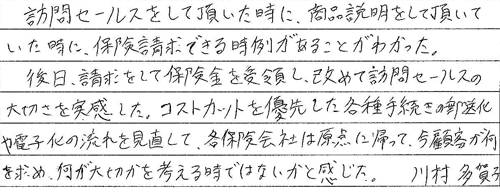 訪問セールスをして頂いた時に、商品説明をして頂いて
いた時に、保険請求できる時例があることがわかった。
後日、請求をして保険金を受領し、改めて訪問セールスの
大切さを実感した。コストカットを優先した各種手続きの郵送化
や電子化の流れを見直して、各保険会社は原点に帰って、今顧客が何
を求め、何が大切かを考える時ではないかと感じた。 川村 多賀子